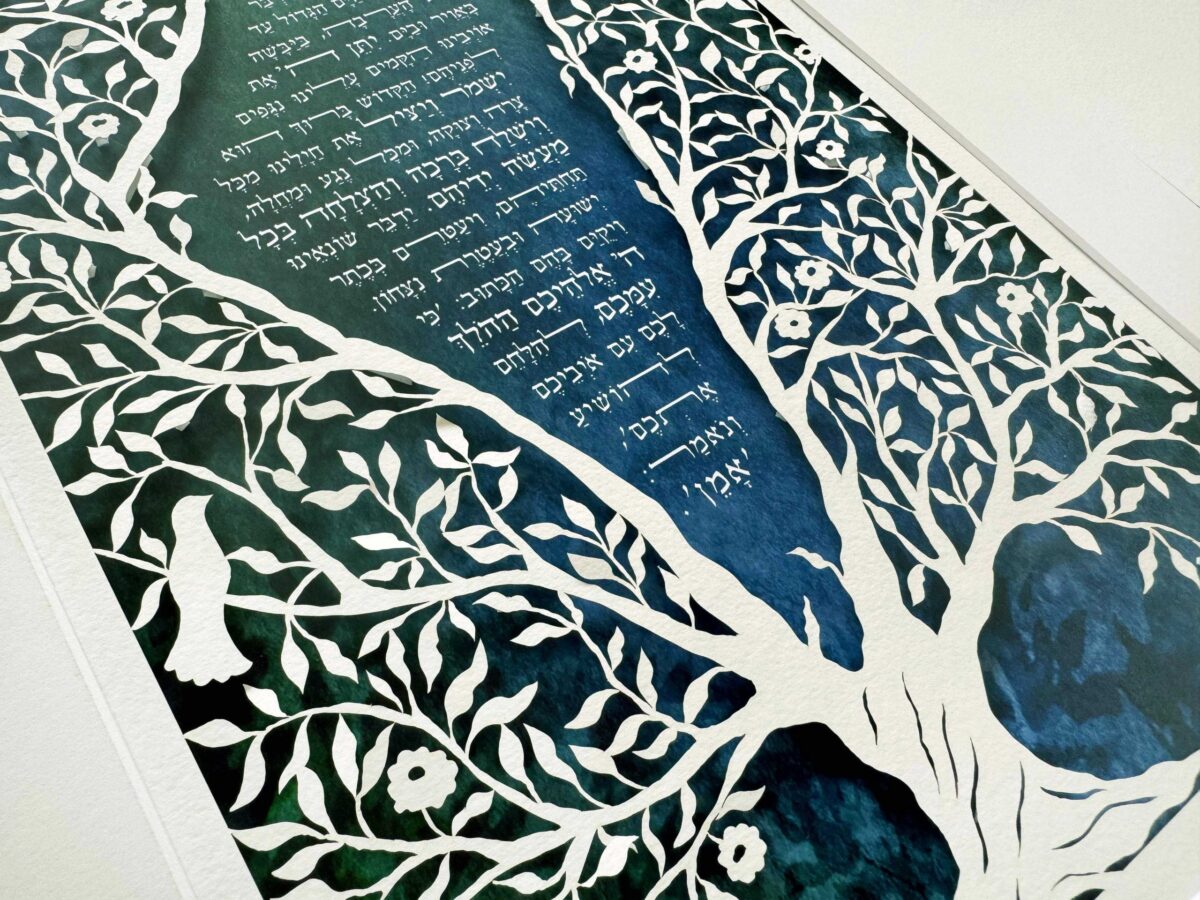 הַגָּדוֹל עַד
הָעֲרָבָה, בַּיַּבָּשָׁה
בָּאֲוִיר וּבַיָּם. יִתֵּן ה' אֶת
אוֹיְבֵינוּ הַקָּמִים עָלֵינוּ נִגָּפִים
לִפְנֵיהֶם! הַקָּדוֹשׁ בָּרוּךְ הוּא
יִשְׁמֹר וְיַצִּיל אֶת חַיָּלֵינוּ מִכָּל
צָרָה וְצוּקָה, וּמִכָּל נֶגַע וּמַחֲלָה,
וְיִשְׁלַח בְּרָכָה וְהַצְלָחָה בְּכָל
מַעֲשֵׂה יְדֵיהֶם. יַדְבֵּר שׂוֹנְאֵינוּ
תַּחְתֵּיהֶם, וִיעַטְּרֵם בְּכֶתֶר
יְשׁוּעָה וּבַעֲטֶרֶת נִצָּחוֹן.
וִיקֻיַּם בָּהֶם הַכָּתוּב: 'כִּי
ה' אֱלֹהֵיכֶם הַהֹלֵךְ
עִמָּכֶם, לְהִלָּחֵם
לָכֶם עִם אֹיְבֵיכֶם
לְהוֹשִׁיעַ
אֶתְכֶם',
וְנֹאמַר:
'אָמֵן'.